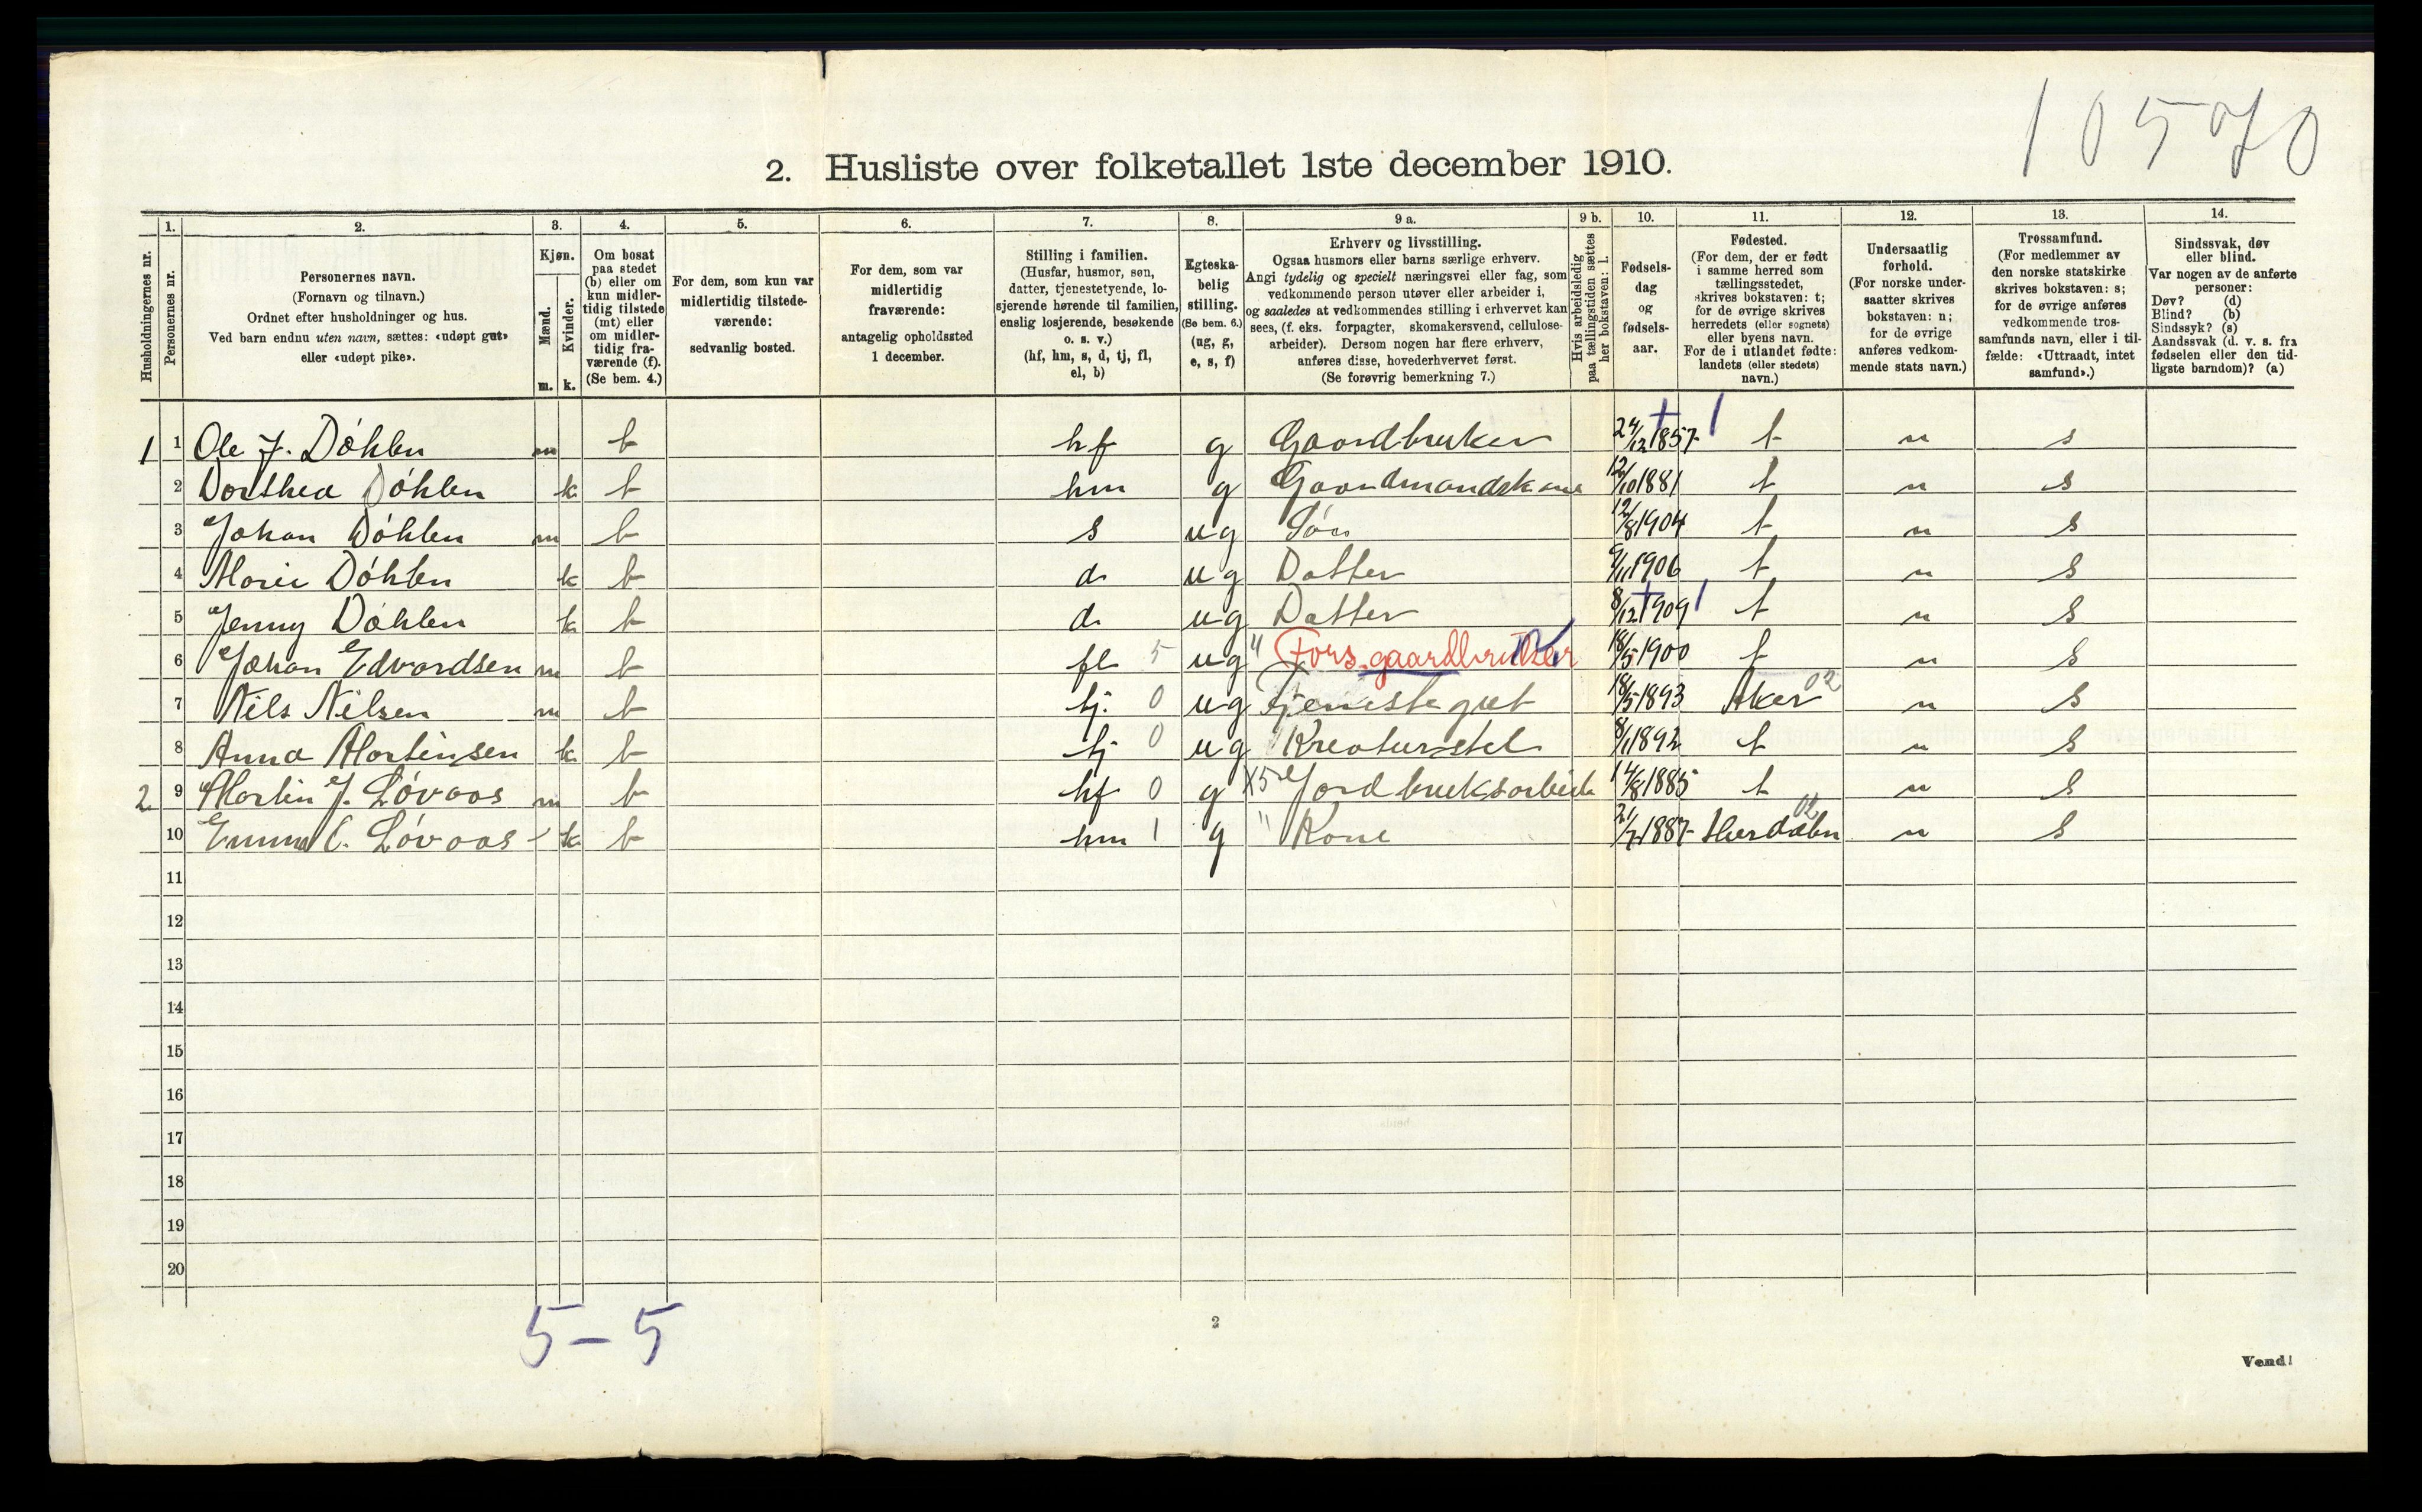 10570
2. Husliste over folketallet 1ste december 1910.
Husholdningernes nr.
1.
Personernes nr.
2.
Personernes navn.
(Fornavn og tilnavn.)
Ordnet efter husholdninger og hus.
Ved barn endnu uten navn, sættes: «udøpt gut»
eller «udøpt pike».
3.
Kjøn.
Mænd.
Kvinder.
m. k.
4.
Om bosat
paa stedet
(b) eller om
kun midler-
tidig tilstede
(mt) eller
om midler-
tidig fra-
værende (f).
(Se bem. 4.)
5.
For dem, som kun var
midlertidig tilstede-
værende:
sedvanlig bosted.
6.
For dem, som var
midlertidig
fraværende:
antagelig opholdssted
1 december.
7.
Stilling i familien.
(Husfar, husmor, søn,
datter, tjenestetyende, lo-
sjerende hørende til familien,
enslig losjerende, besøkende
o. s. v.)
(hf, hm, s, d, tj, fl,
el, b)
8.
Egteska-
belig
stilling.
(Se bem. 6.)
(ug, g,
e, s, f)
9 a.
Erhverv og livsstilling.
Ogsaa husmors eller barns særlige erhverv.
Angi tydelig og specielt næringsvei eller fag, som
vedkommende person utøver eller arbeider i,
og saaledes at vedkommendes stilling i erhvervet kan
sees, (f. eks. forpagter, skomakersvend, cellulose-
arbeider). Dersom nogen har flere erhverv,
anføres disse, hovederhvervet først.
(Se forøvrig bemerkning 7.)
9 b.
Hvis arbeidsledig
paa tællingstiden sættes
her bokstaven: l.
10.
Fødsels-
dag
og
fødsels-
aar.
11.
Fødested.
(For dem, der er født
i samme herred som
tællingsstedet,
skrives bokstaven: t;
for de øvrige skrives
herredets (eller sognets)
eller byens navn.
For de i utlandet fødte:
landets (eller stedets)
navn.)
12.
Undersaatlig
forhold.
(For norske under-
saatter skrives
bokstaven: n;
for de øvrige
anføres vedkom-
mende stats navn.)
13.
Trossamfund.
(For medlemmer av
den norske statskirke
skrives bokstaven: s;
for de øvrige anføres
vedkommende tros-
samfunds navn, eller i til-
fælde: «Uttraadt, intet
samfund».)
14.
Sindssvak, døv
eller blind.
Var nogen av de anførte
personer:
Døv? (d)
Blind? (b)
Sindssyk? (s)
Aandssvak (d. v. s. fra
fødselen eller den tid-
ligste barndom)? (a)
1 1 Ole J. Döhlen m b hf g Gaardbruker 24/12 1857 t n s
2 Dorthea Döhlen k b hm g Gaardmandskone 12/10 1881 t n s
3 Johan Döhlen m b s ug Sön 12/8 1904 t n s
4 Marie Döhlen k b d ug Datter 9/11 1906 t n s
5 Jenny Döhlen k b d ug Datter 8/12 1909 t n s
6 Johan Edvardsen m b fl 5 ug " Fors. gaardbruker 18/5 1900 t n s
7 Nils Nilsen m b tj. 0 ug Tjenestegut 18/5 1893 Aker 02 n s
8 Anna Martinsen k b tj 0 ug Kreaturstel 8/1 1892 t n s
2 9 Martin J. Lövaas m b hf 0 g X5 Jordbruksarbeide 14/8 1885 t n s
10 Emma C. Lövaas k b hm 1 g " Kone 21/7 1887 Hurdalen 02 n s
11
12
13
14
15
16
17
18
19
20
5-5
2
Vend!